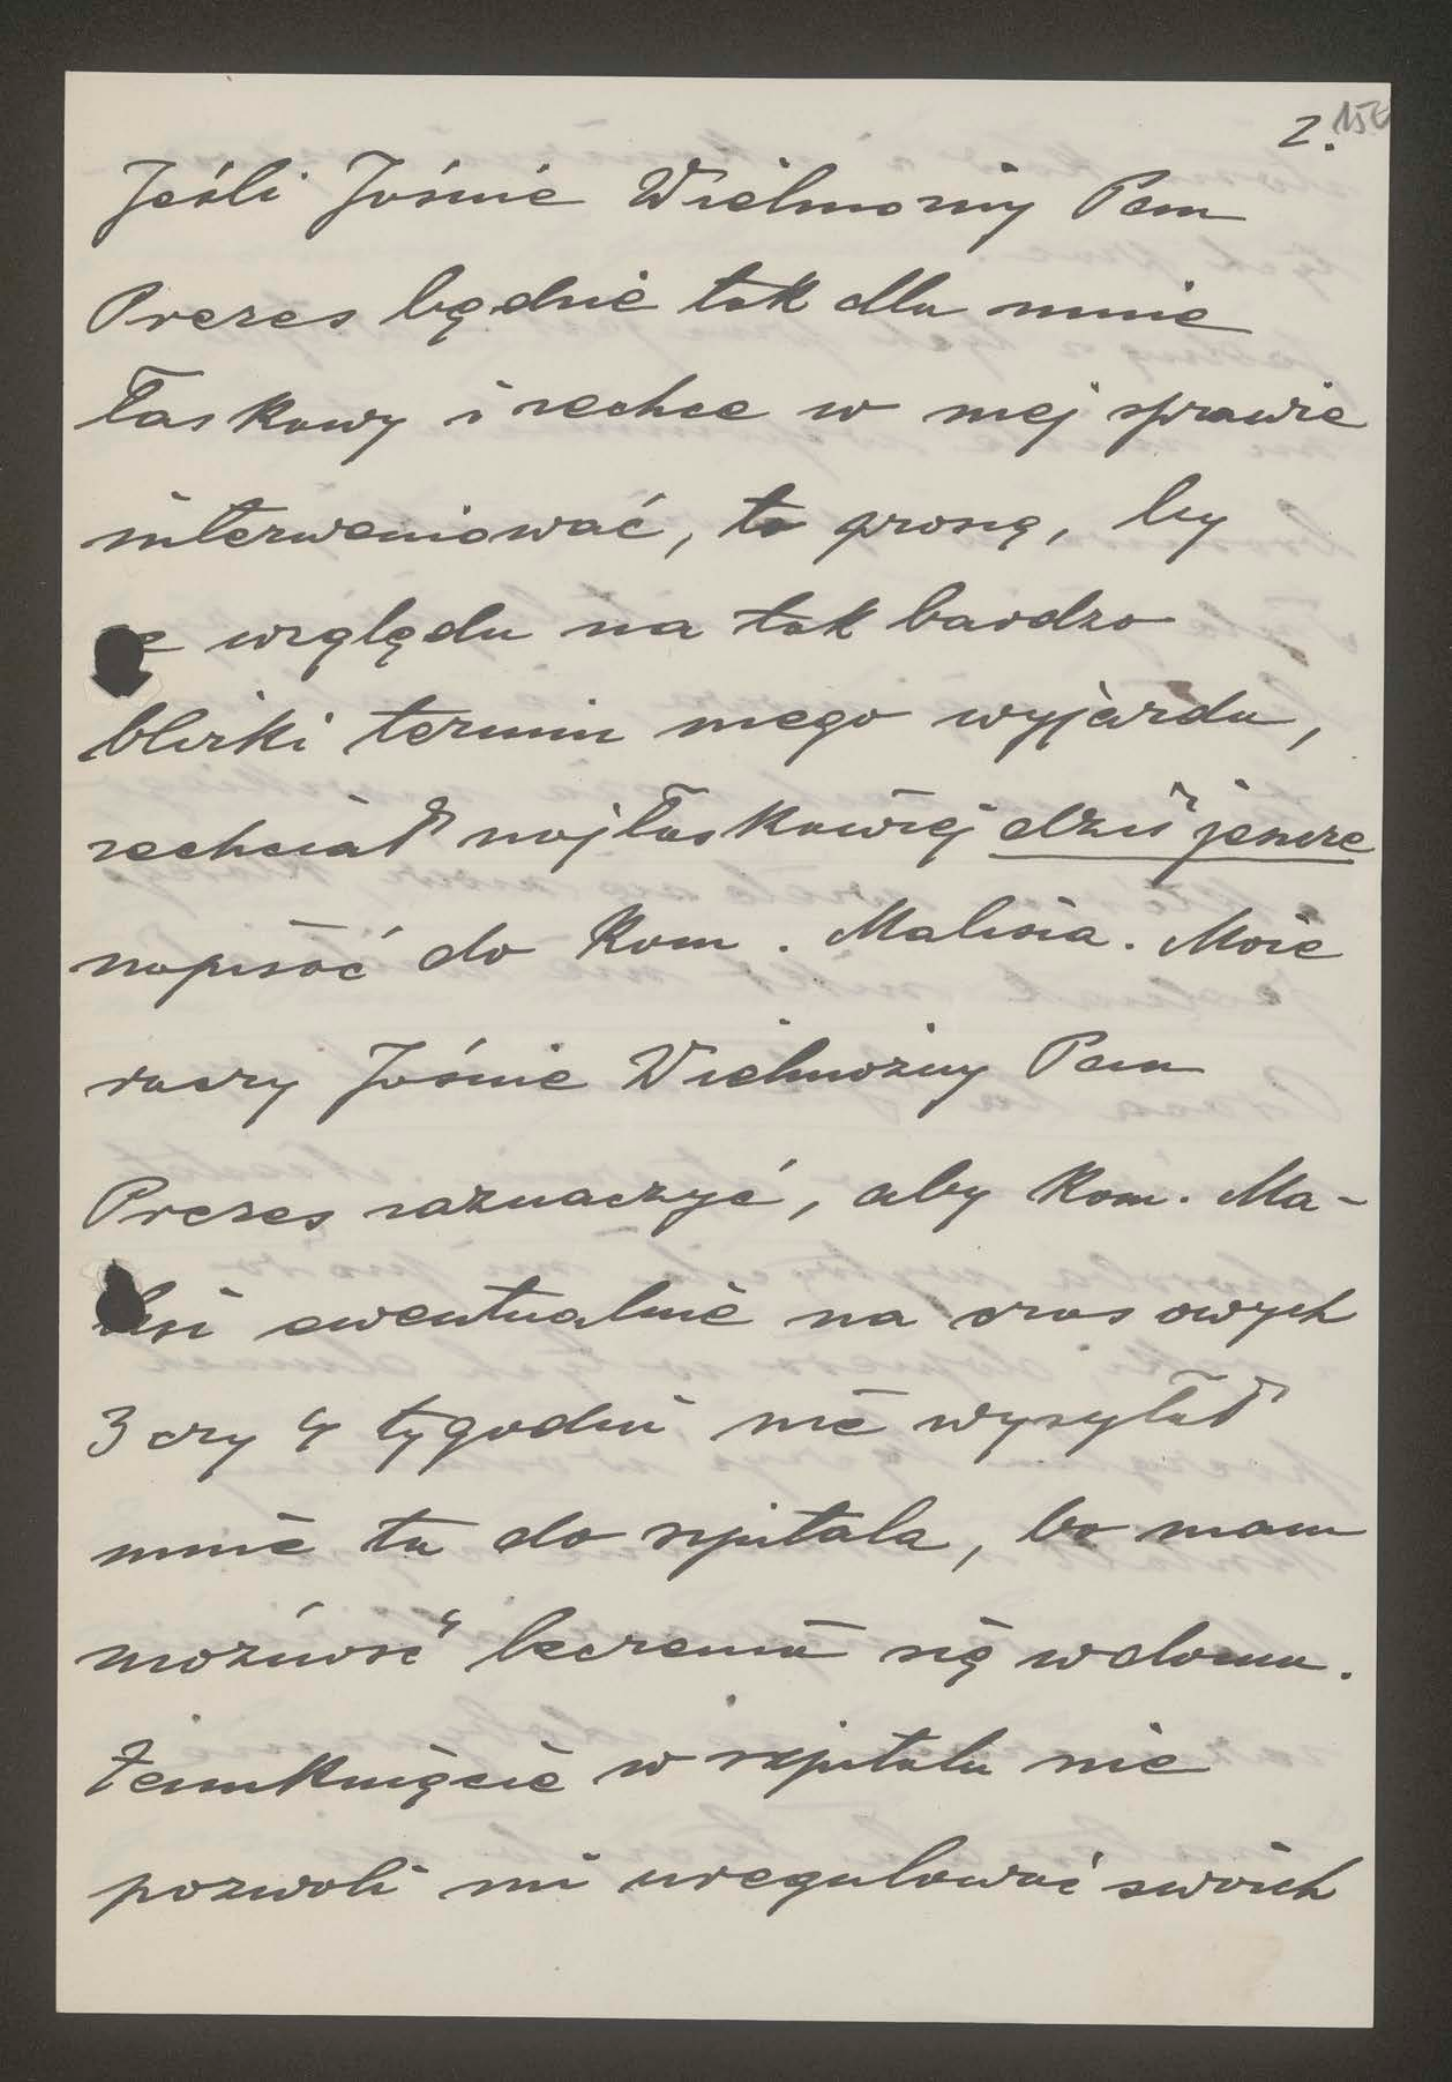 2.
Jeśli Jaśnie Wielmożny Pan
Prezes będzie tak dla mnie
łaskawy i zechce w mej sprawie
interweniować, to proszę, by
ze względu na tak bardzo
bliski termin mego wyjazdu,
zechciał najłaskawiej dziś jeszcze
napisać do Kom. Malisia. Może
raczy Jaśnie Wielmożny Pan
Prezes zaznaczyć, aby Kom. Ma-
liś ewentualnie na czas owych
3 czy 4 tygodni nie wysyłał
mnie tu do szpitala, bo mam
możność leczenia się w domu.
Zamknięcie w szpitalu nie
pozwoli mi uregulować swoich